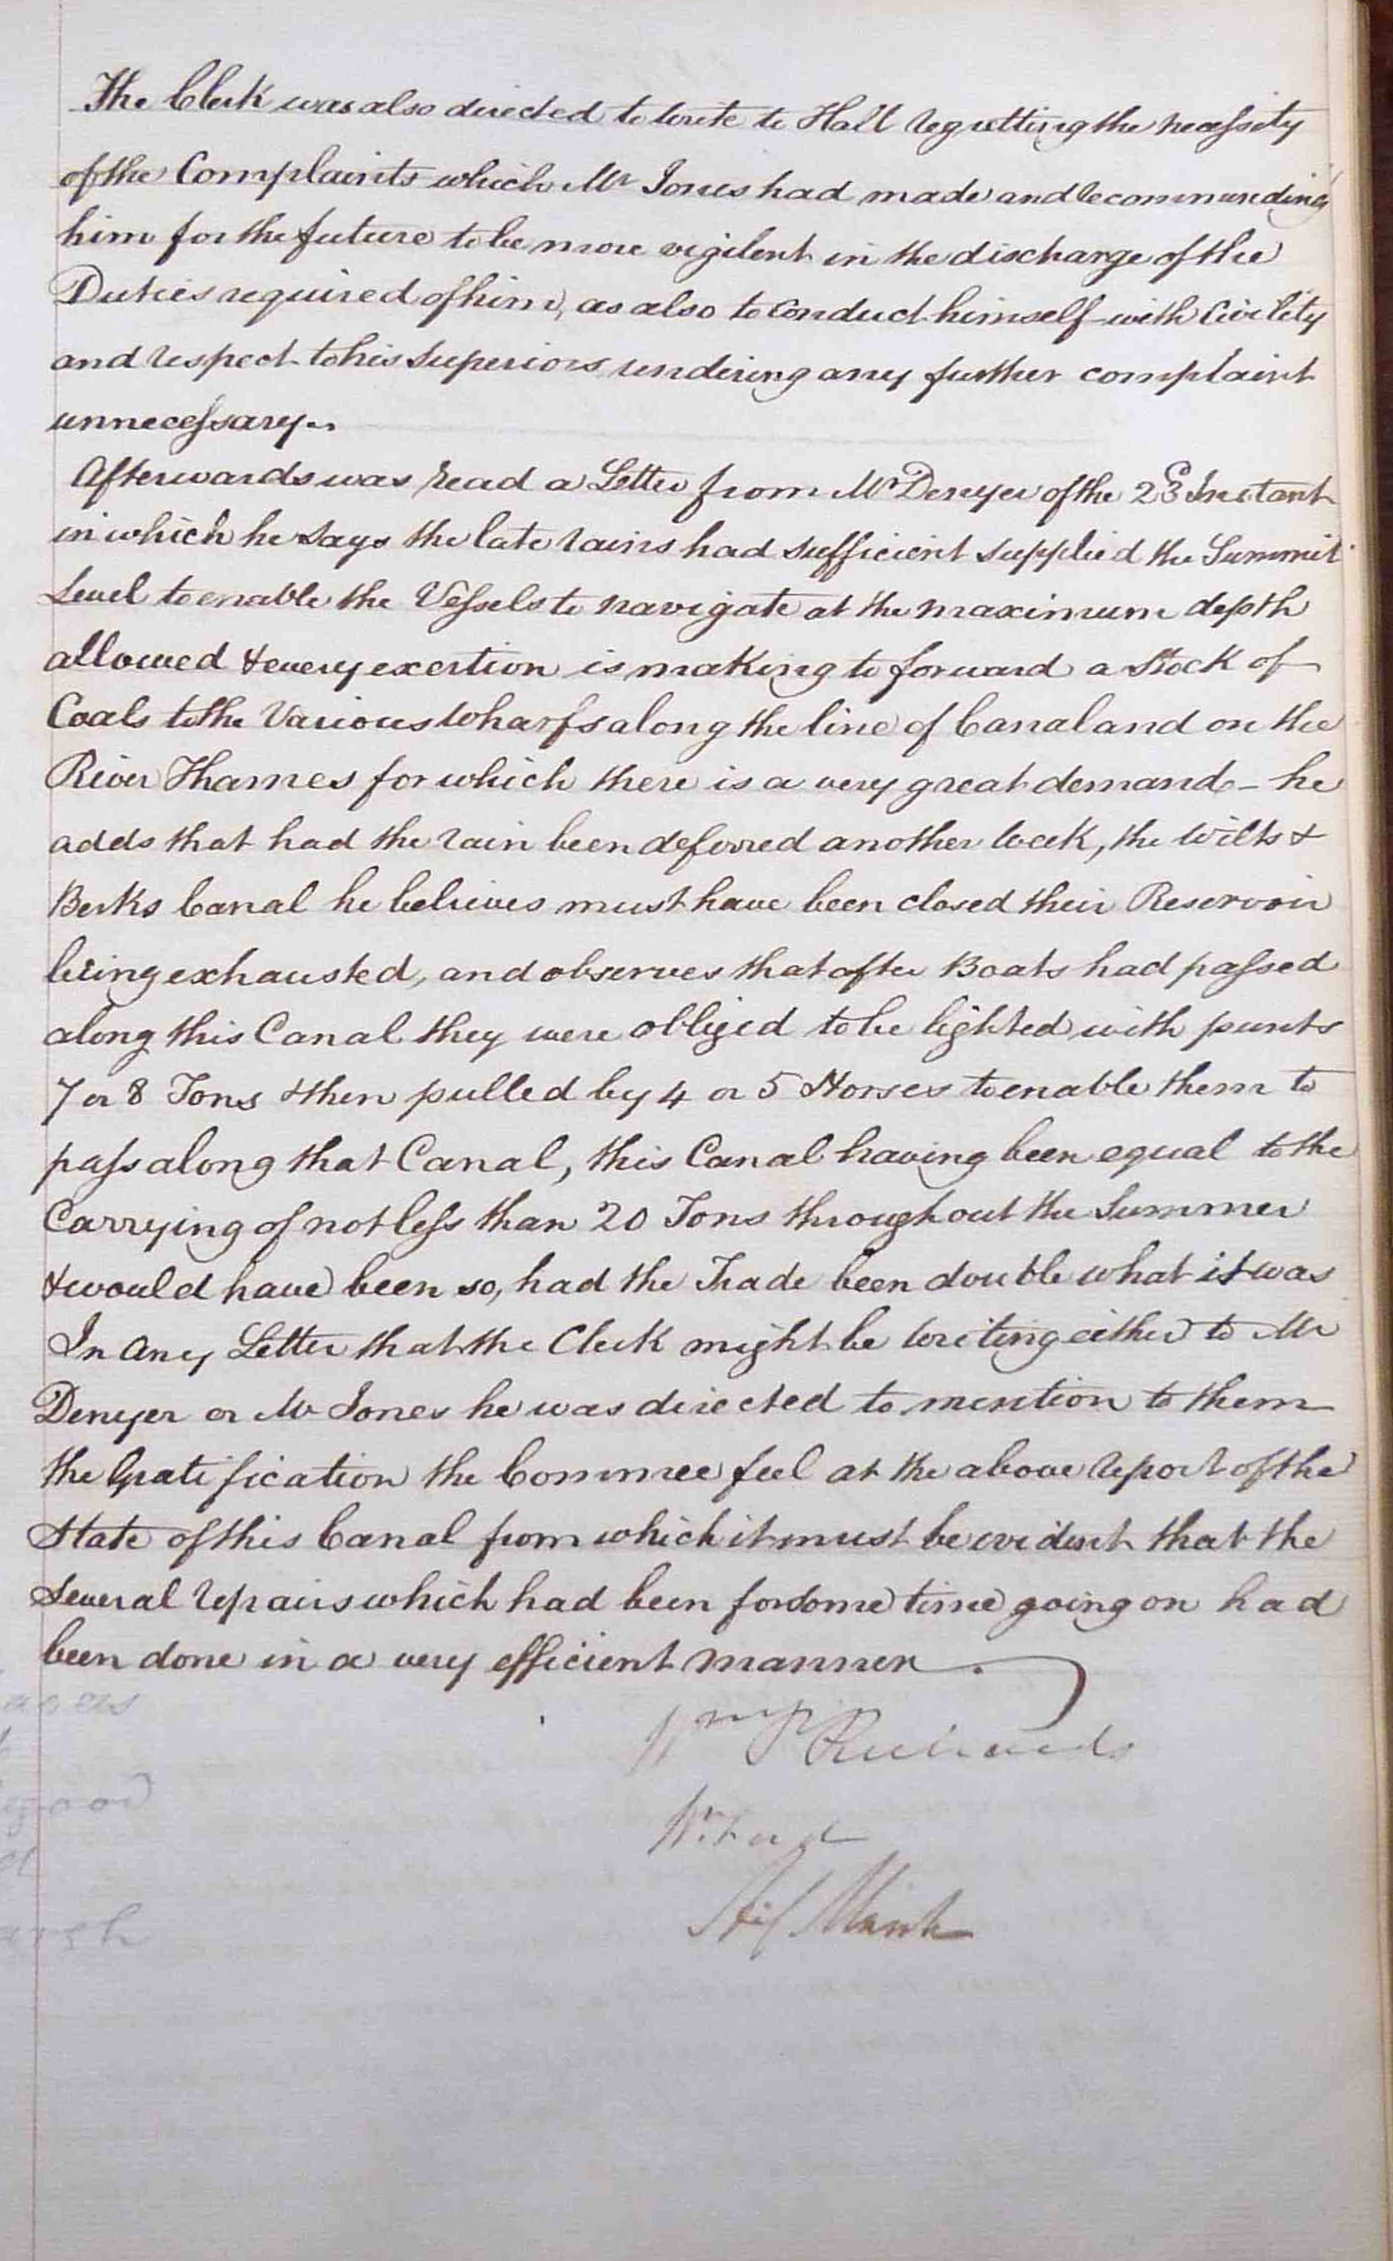 The Clerk was also directed to write to Hall regretting the necessity
of the Complaints which Mr Jones had made and recommending
him for the future to be more vigilent in the discharge of the
Duties required of him, as also to conduct himself with Civility
and respect to his Superiors rendering any further complaint
unnecessary.
Afterwards was read a Letter from Mr Denyer of the 23d Instant
in which he says the late rains had sufficient supplied the Summit
Level to enable the Vessels to navigate at the maximum depth
allowed & every exertion is making to forward a Stock of
Coals to the Various Wharfs along the line of Canal and on the
River Thames for which there is a very great demand - he
adds that had the rain been deferred another week, the Wilts &
Berks Canal he believes must have been closed their Reservoir
being exhausted, and observes that after Boats had passed
along this Canal they were obliged to be lighted with punts
7 or 8 Tons & then pulled by 4 or 5 Horses to enable them to
pass along that Canal, this Canal having been equal to the
Carrying of not less than 20 Tons throughout the Summer
& would have been so, had the Trade been double what it was
In any Letter that the Clerk might be writing either to Mr
Denyer or Mr Jones he was directed to mention to them
the Gratification the Commee feel at the above report of the
State of this Canal from which it must be evident that the
Several repairs which had been for some time going on had
been done in a very efficient manner.
Wm Richards